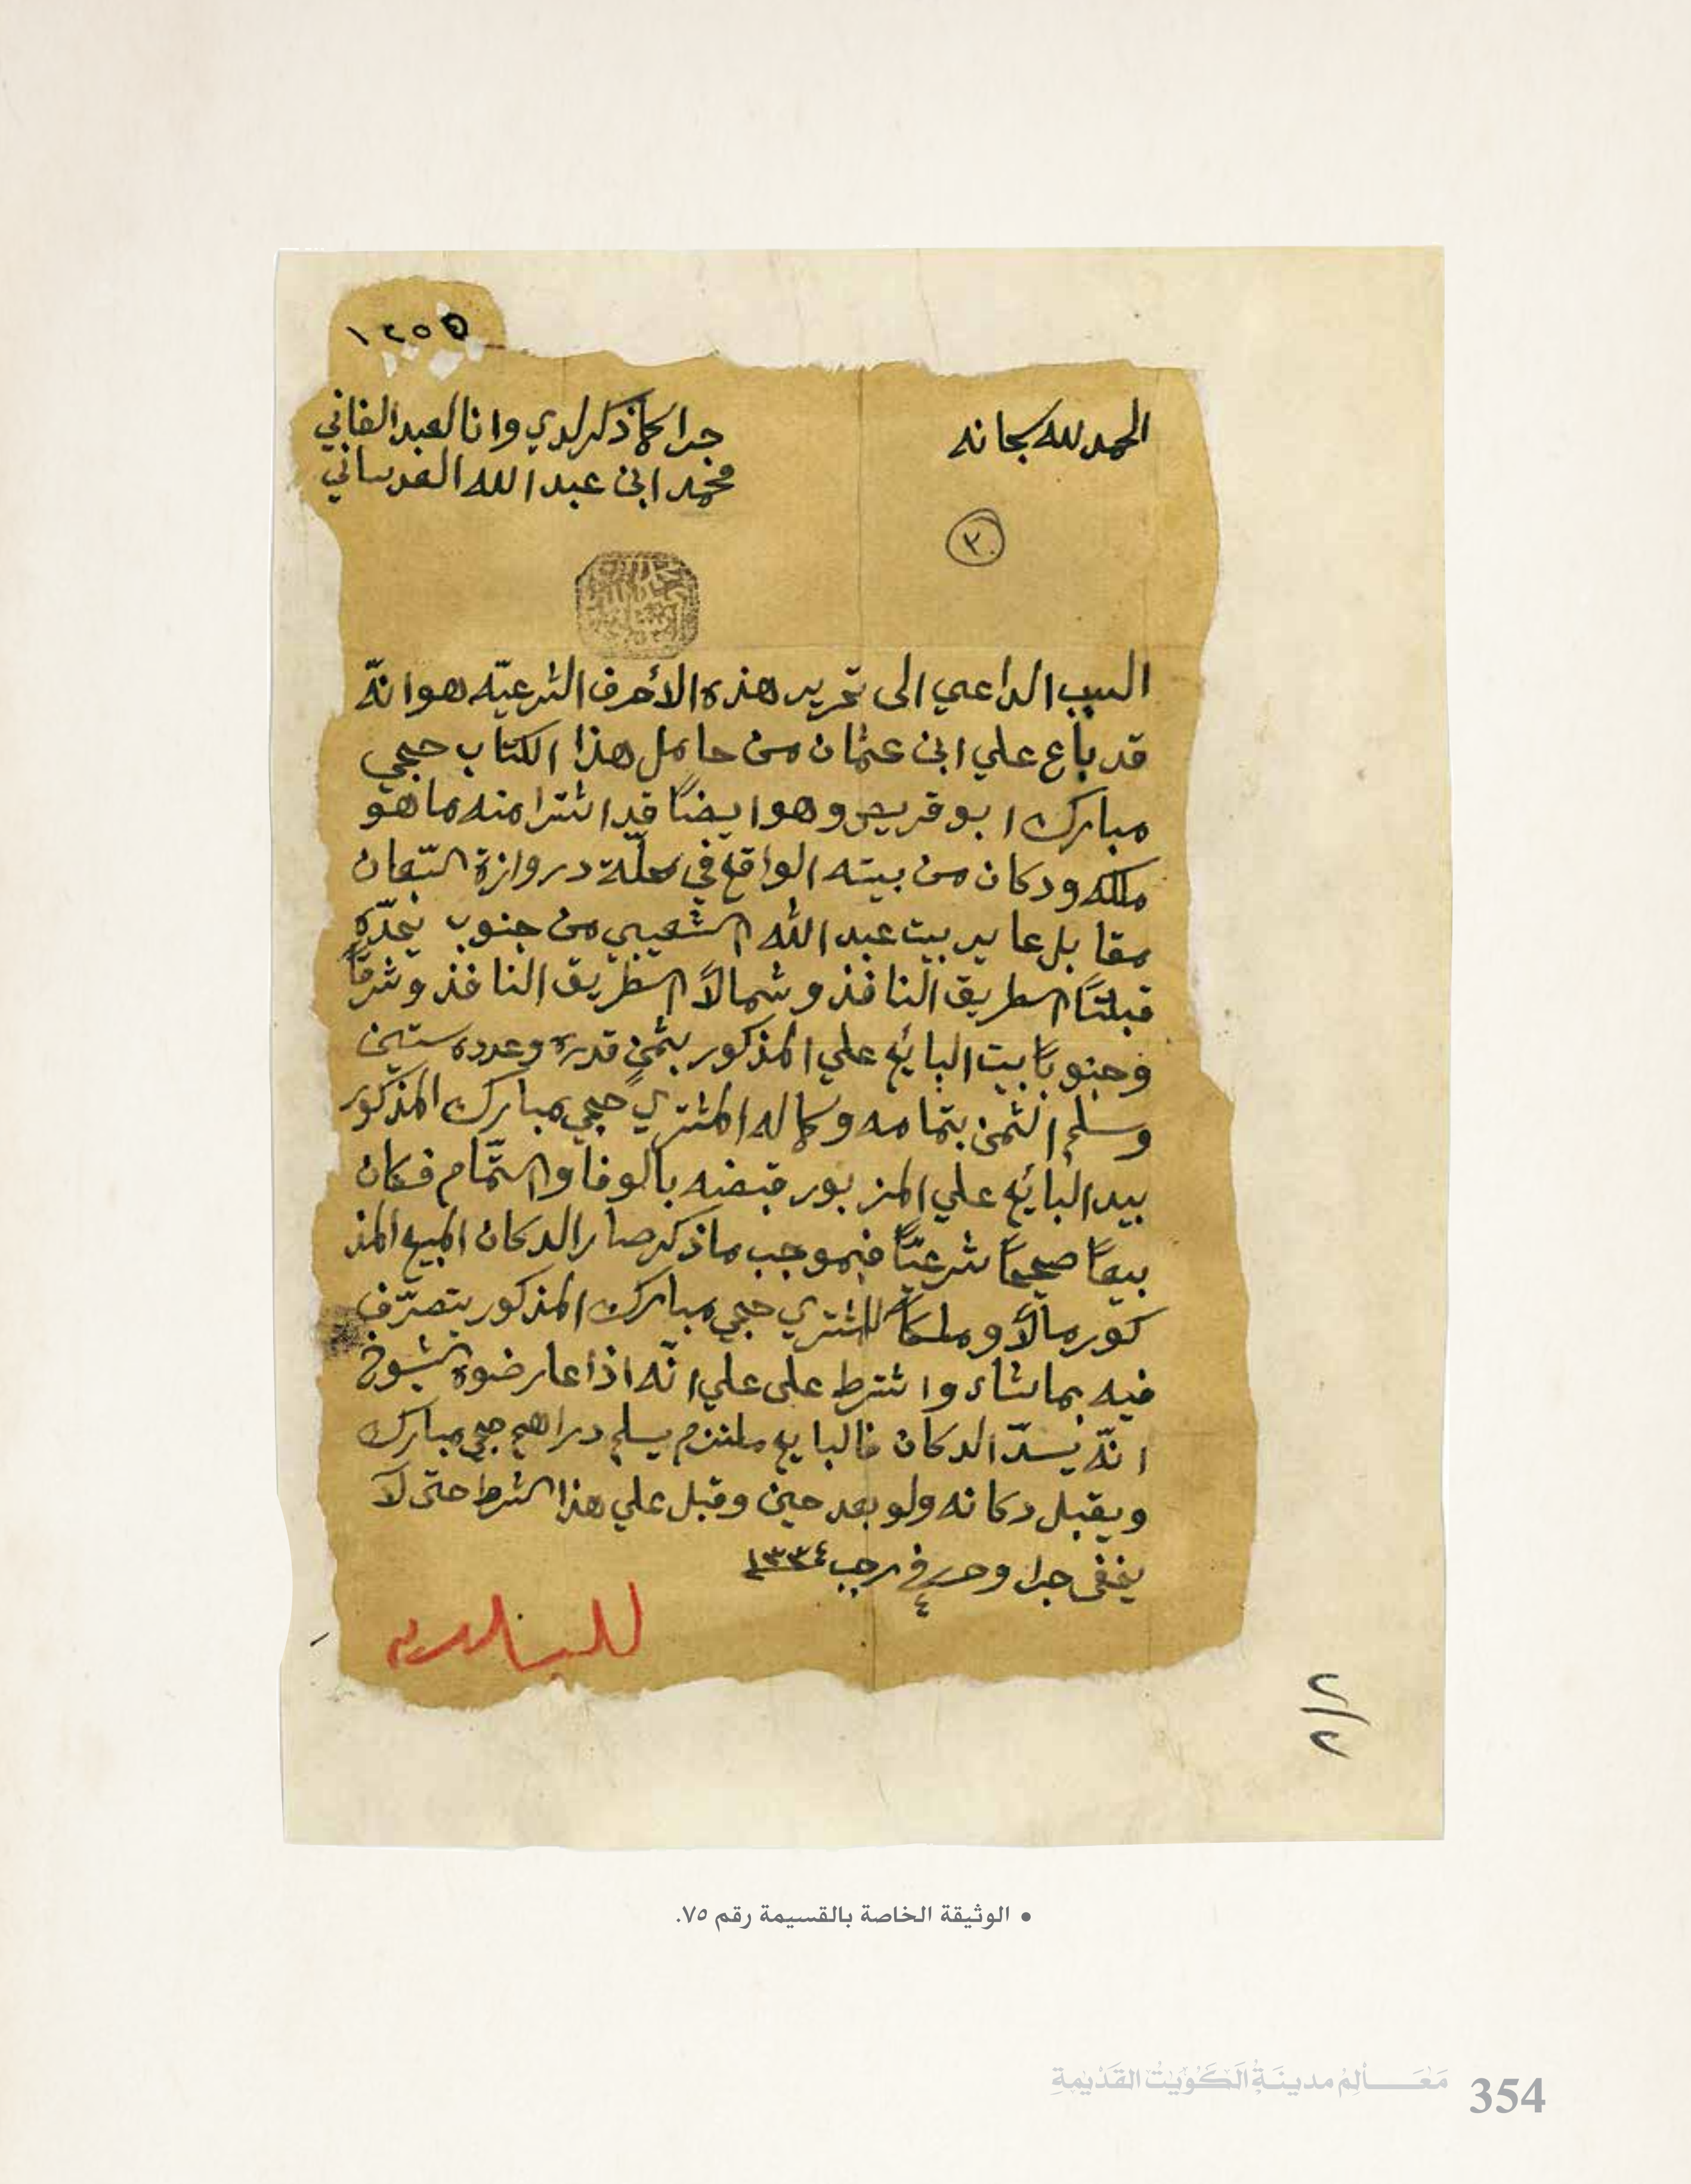 ١٢٥٥
الحمد لله سبحانه
جرا كما ذكر لدي وانا العبد الفاني
محمد ابن عبد الله العدساني
٣
السبب الداعي الى تحرير هذه الأحرف الشرعيّه هو انّه
قد باع علي ابن عثمان من حامل هذا الكتاب حجي
مبارك ابو قريص وهو ايضًا قد اشترا منه ما هو
ملكه ودكان من بيته الواقع في محلّة دروازة السّبعان
مقابل عاير بيت عبد الله الشعيبي من جنوب يحدّه
قبلتًا الطريق النافذ وشمالًا الطريق النافذ وشرقًا
وجنوبًا بيت البايع علي المذكور بثمنٍ قدره وعدده ستين
وسلم الثمن بتمامه وكماله المشتري حجي مبارك المذكور
بيد البايع علي المزبور قبضه بالوفا والتّمام فكان
بيعًا صحيحًا شرعيًّا فبموجب ما ذكر صار الدكان المبيع المذ
كور مالًا وملكًا للمشتري حجي مبارك المذكور يتصرّف
فيه بما شاء واشترط على علي انّه اذا عارضوه الشيوخ
انّه يسدّ الدكان فالبايع ملتزم يسلم دراهم حجي مبارك
ويقبل دكانه ولو بعد حين وقبل علي هذا الشرط حتى لا
يخفى جرا وحرر في ٤ رجب ١٣٣٤
٢/٢
• الوثيقة الخاصة بالقسيمة رقم ٧٥.
مَعَالِمُ مدينَةِ الكُوَيْتِ القَدْيمةِ
354